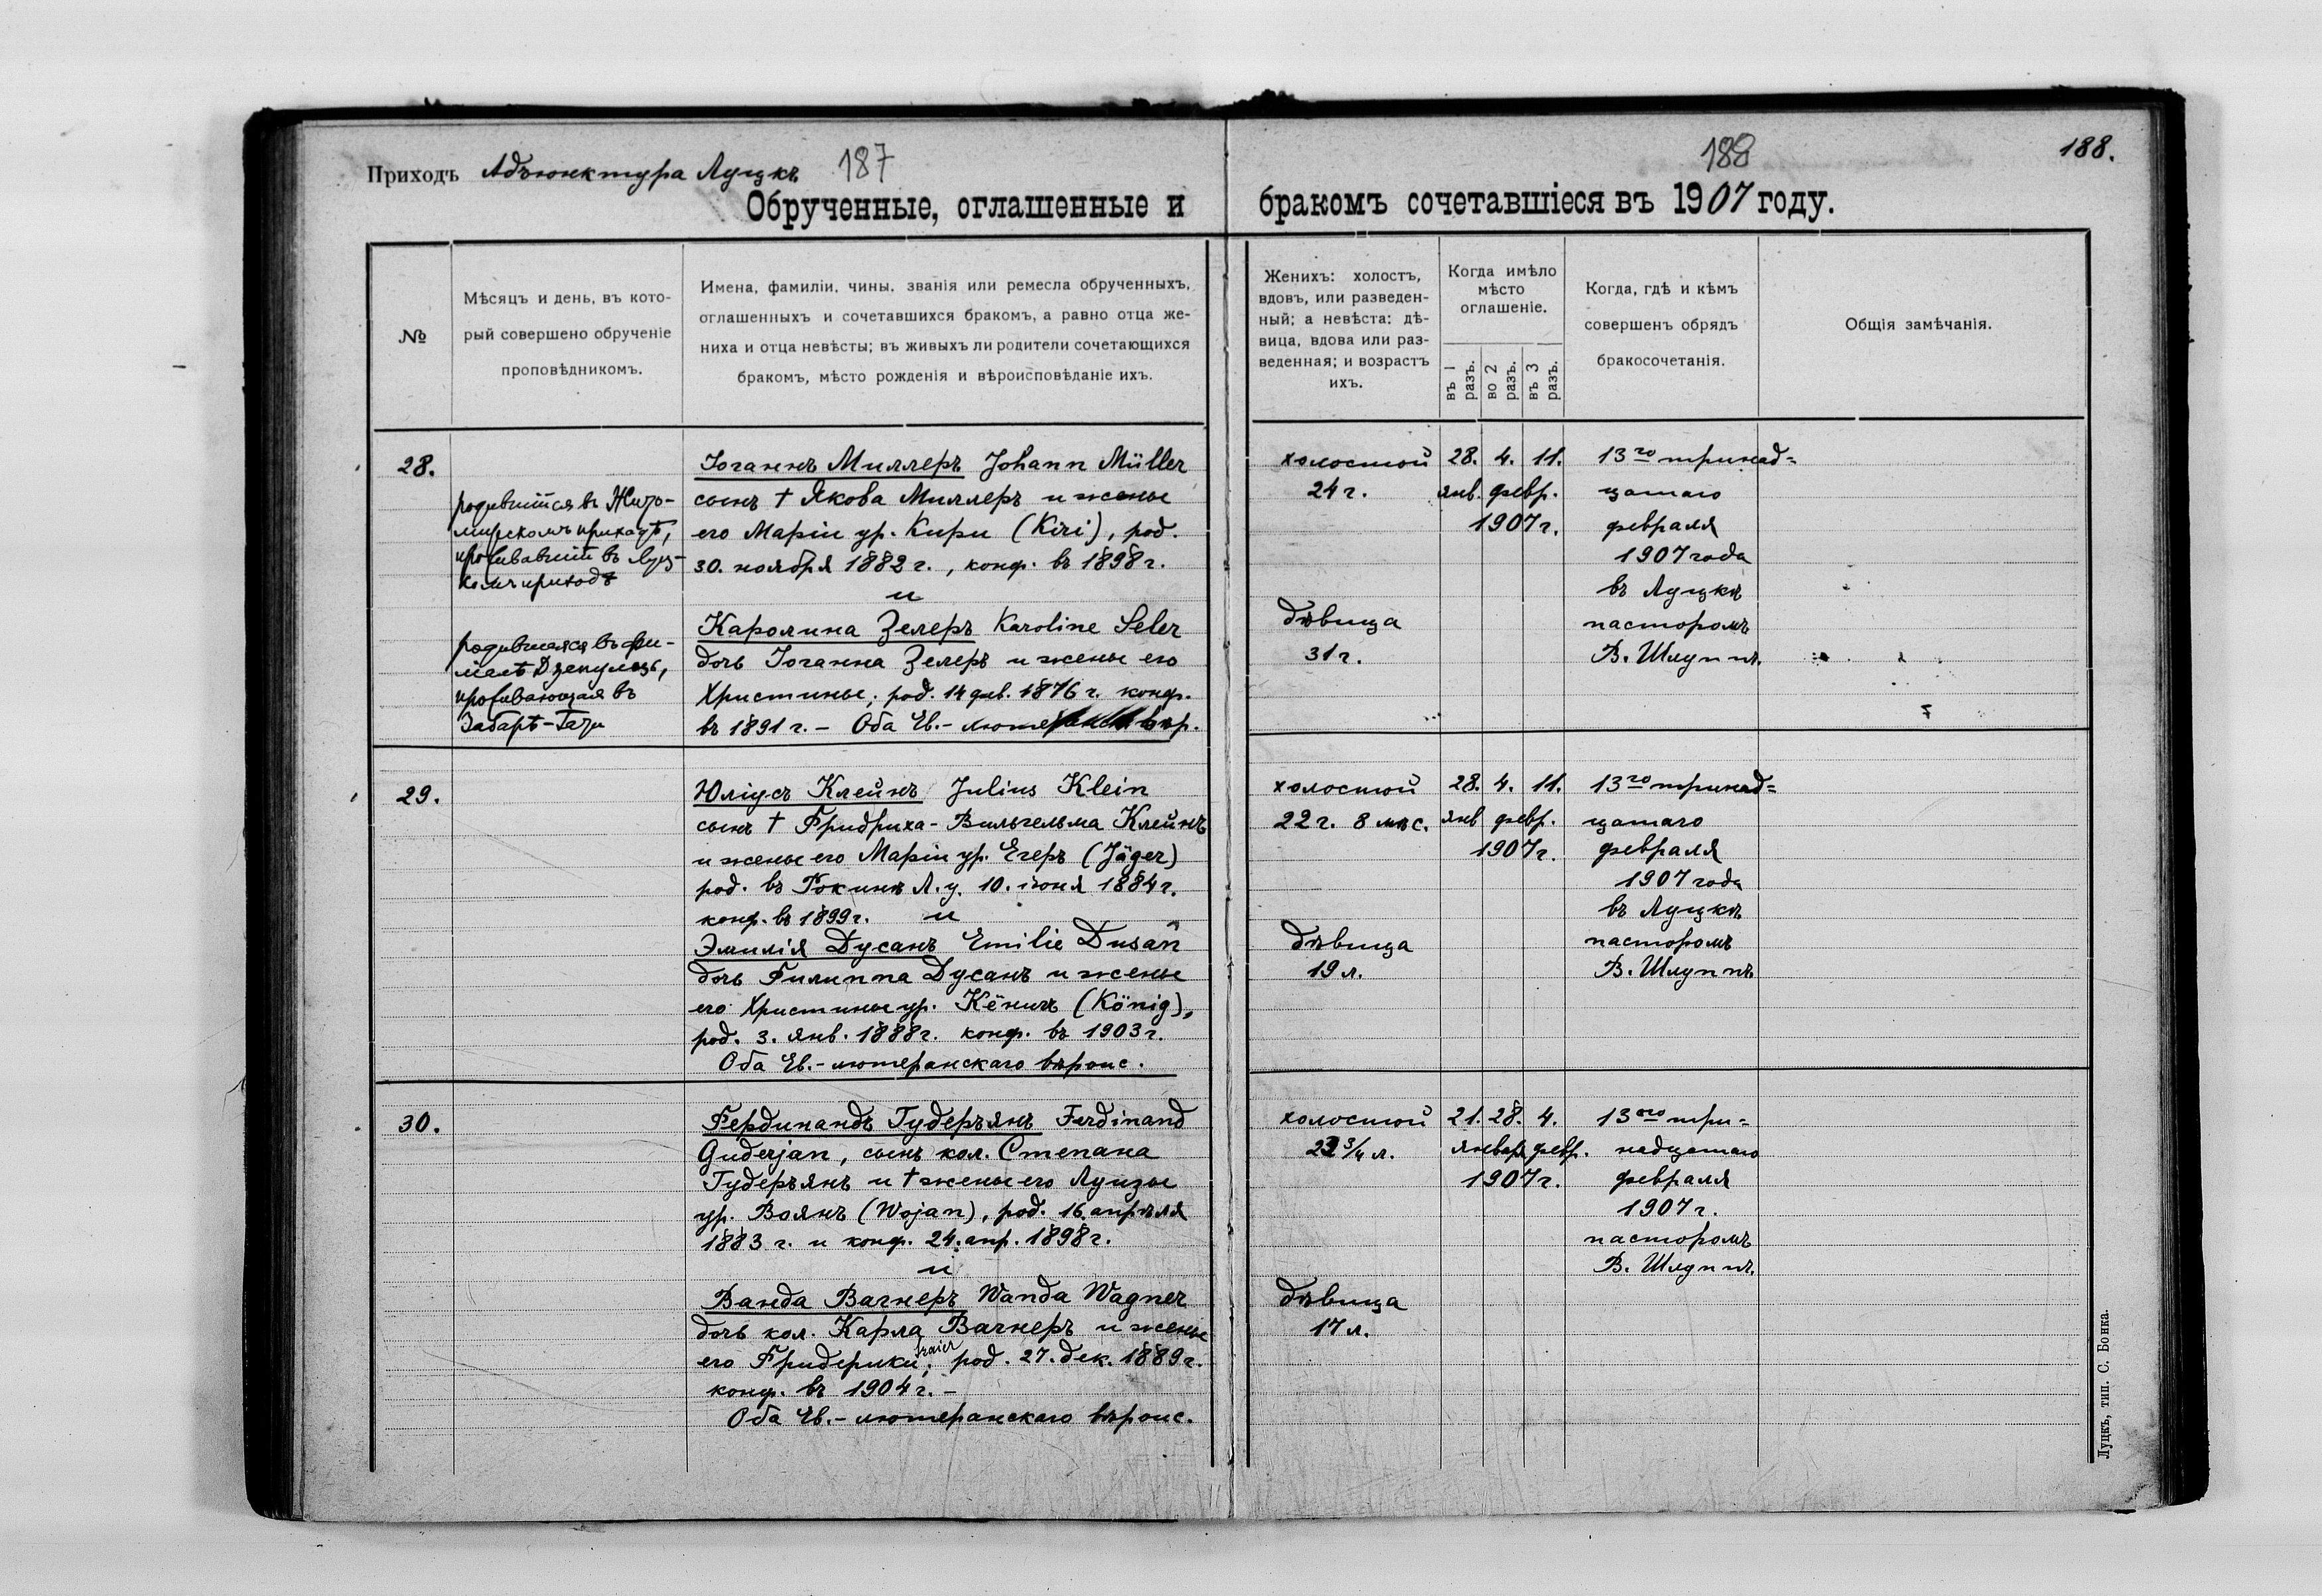 Приходъ Адъюнктура Луцкъ 187
188 188.
Обрученные, оглашенные и бракомъ сочетавшіеся въ 1907 году.
№
Мѣсяцъ и день, въ кото-
рый совершено обрученіе
проповѣдникомъ.
Имена, фамиліи, чины, званія или ремесла обрученныхъ,
оглашенныхъ и сочетавшихся бракомъ, а равно отца же-
ниха и отца невѣсты; въ живыхъ ли родители сочетающихся
бракомъ, мѣсто рожденія и вѣроисповѣданіе ихъ.
Женихъ: холостъ,
вдовъ, или разведен-
ный; а невѣста: дѣ-
вица, вдова или раз-
веденная; и возрастъ
ихъ.
Когда имѣло
мѣсто
оглашеніе.
въ 1 разъ.
во 2 разъ.
въ 3 разъ.
Когда, гдѣ и кѣмъ
совершенъ обрядъ
бракосочетанія.
Общія замѣчанія.
28.
родившійся въ Жито-
мирскомъ приходѣ,
проживавшій въ Луц-
комъ приходѣ
родившаяся въ фи-
проживающая въ
Іоганнъ Миллеръ Johann Müller
сынъ † Якова Миллеръ и жены
его Маріи ур. Кири (Kiri), род.
30. ноября 1882 г., конф. въ 1898 г.
и
Каролина Зелеръ Karoline Seler
дочь Іоганна Зелеръ и жены его
Христины; род. 14 1876 г. конф.
въ 1891 г. – Оба Ев.-
холостой
24 г.
дѣвица
31 г.
28. 4. 11.
янв. февр.
1907 г.
13го тринад=
цатаго
февраля
1907 года
въ Луцкѣ
пасторомъ
В. Шлуппъ.
29.
Юліусъ Клейнъ Julius Klein
сынъ † Фридриха-Вильгельма Клейнъ
и жены его Маріи ур. Егеръ (Jäger)
род. въ Рокинѣ Л. у. 10. іюня 1884 г.
конф. въ 1899 г. и
Эмилія Дусанъ Emilie Dusan
дочь Филиппа Дусанъ и жены
его Христины ур. Кёнигъ (König),
род. 3. янв. 1888 г. конф. въ 1903 г.
Оба Ев.-лютеранскаго вѣроис.
холостой
22 г. 8 мѣс.
дѣвица
19 л.
28. 4. 11.
янв февр.
1907 г.
13го тринад=
цатаго
февраля
1907 года
въ Луцкѣ
пасторомъ
В. Шлуппъ
30.
Фердинандъ Гудеръянъ Ferdinand
Guderjan, сынъ кол. Степана
Гудеръянъ и † жены его Луизы
ур. Воянъ (Wojan), род. 16. апрѣля
1883 г. и конф. 24. апр. 1898 г.
и
Ванда Вагнеръ Wanda Wagner
дочь кол. Карла Вагнеръ и жены
его Фридерики; род. 27. дек. 1889 г.
конф. въ 1904 г. –
Оба Ев.-лютеранскаго вѣроис.
холостой
23 3/4 л.
дѣвица
17 л.
21. 28. 4.
января февр.
1907 г.
13ого три=
надцатаго
февраля
1907 г.
пасторомъ
В. Шлуппъ.
Луцкъ, тип. С. Бонка.